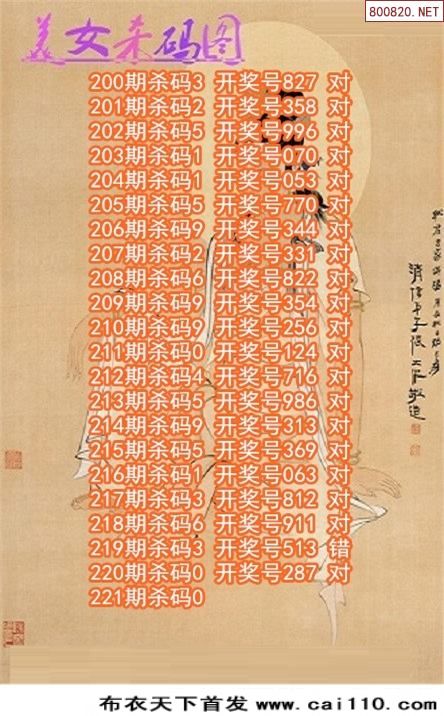 800820.NET
美女杀码图
200期杀码3 开奖号827 对
201期杀码2 开奖号358 对
202期杀码5 开奖号996 对
203期杀码1 开奖号070 对
204期杀码1 开奖号053 对
205期杀码5 开奖号770 对
206期杀码9 开奖号344 对
207期杀码2 开奖号331 对
208期杀码6 开奖号822 对
209期杀码9 开奖号354 对
210期杀码9 开奖号256 对
211期杀码0 开奖号124 对
212期杀码4 开奖号716 对
213期杀码5 开奖号986 对
214期杀码9 开奖号313 对
215期杀码5 开奖号369 对
216期杀码1 开奖号063 对
217期杀码3 开奖号812 对
218期杀码6 开奖号911 对
219期杀码3 开奖号513 错
220期杀码0 开奖号287 对
221期杀码0
布衣天下首发 www.cai110.com